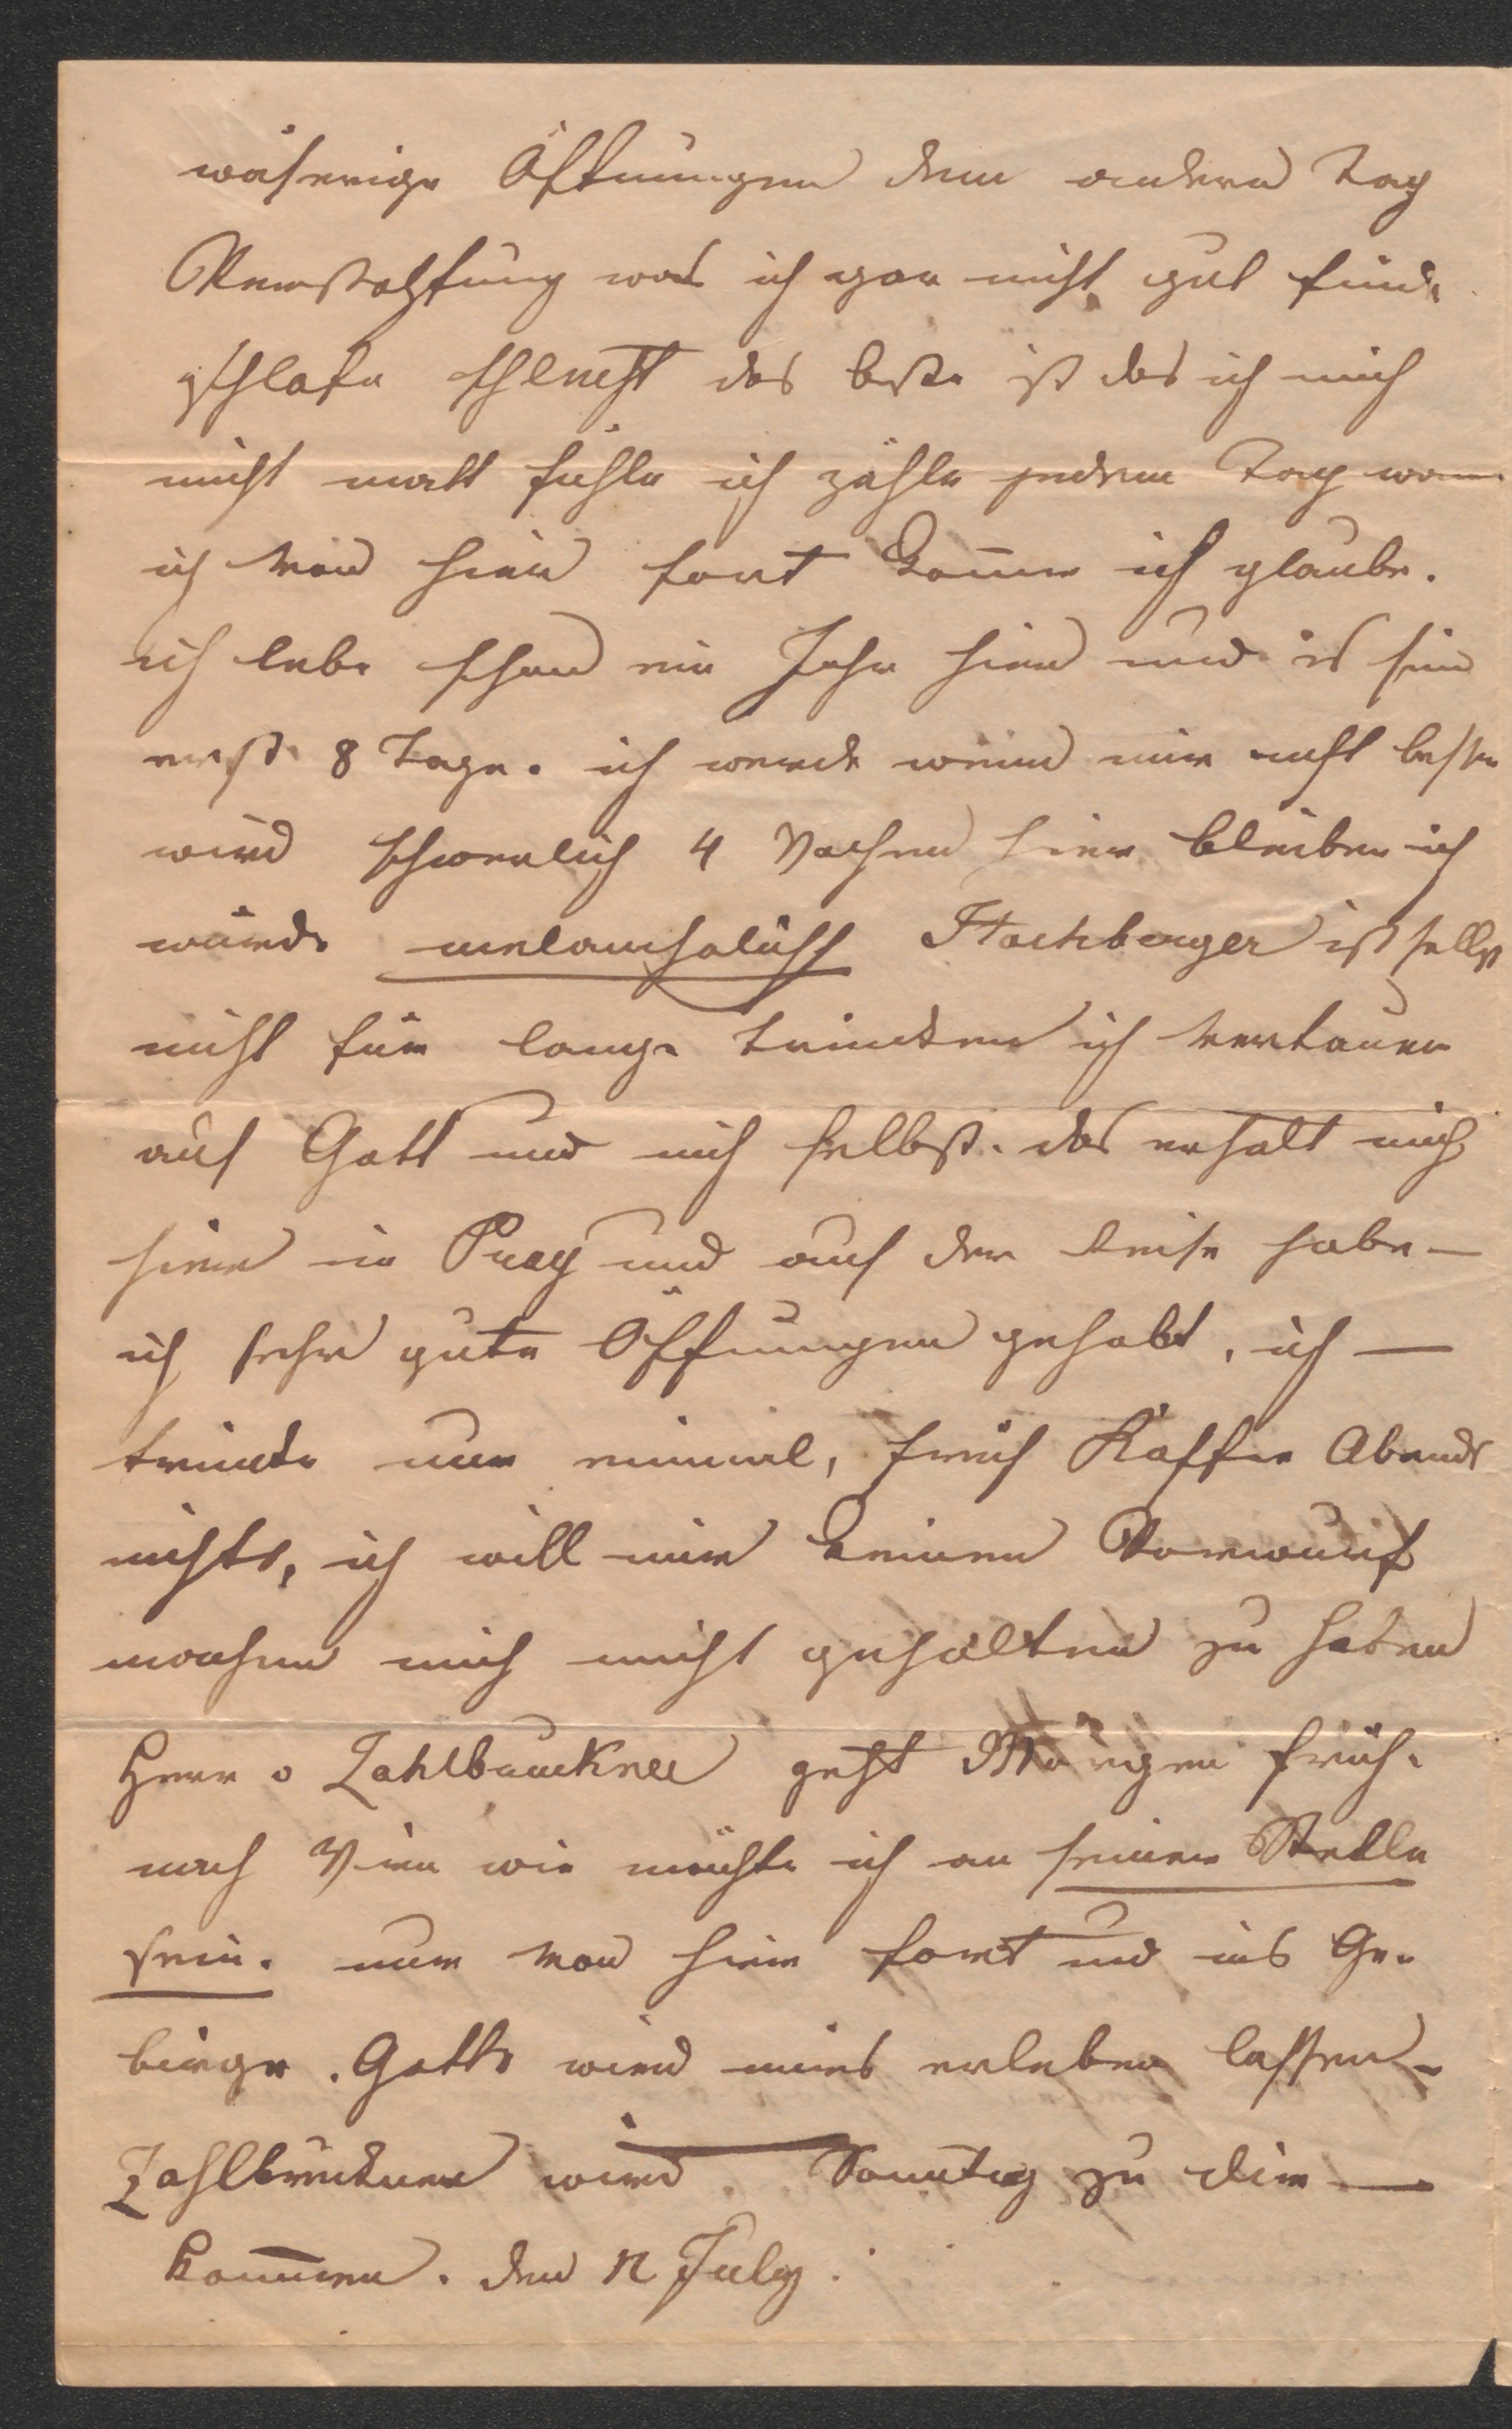 wäserige Öffnungen dem andern Tag
Verstopfung was ich gar nicht gut finde
schlafe schlecht das beste ist das ich mich
nicht matt fühle ich zähle jeden Tag wann
ich von hier fort komme ich glaube.
ich lebe schon ein Jahr hier und es sind
erst 8 Tage. ich werde wenn mir nicht besser
wird schwerlich 4 Wochen hier bleiben ich
würde melancholisch Hochberger ist selbst
nicht für lange trincken ich vertaue
auf Gott und mich selbst. das erhalt mich
hier in Prag und auf der Reise habe —
ich sehr gute Öffnungen gehabt, ich —
trincke nur einmal, früh Kaffee Abends
nichts, ich will mir keinen Vorwurf
machen mich nicht gehalten zu haben
Herr v Zahlbruckner geht Morgen früh
nach Wien wie möchte ich an seiner Stelle
sein. nur von hier fort und ins Ge-
birge. Gott wird mirs erleben lassen-
Zahlbruckner wird Sonntag zu dir —
kommen. den 12 July.